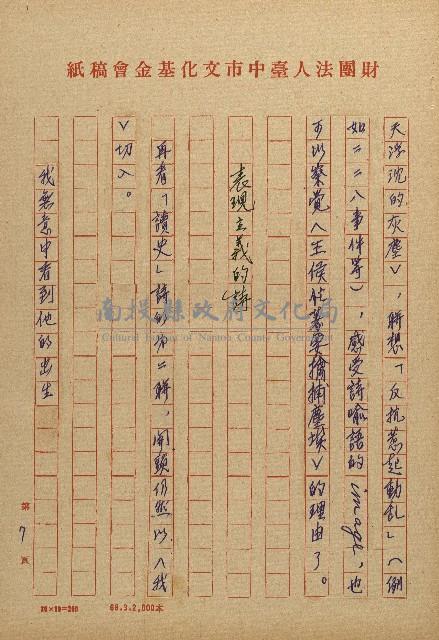 財團法人臺中市文化基金會稿紙
天浮沉的灰塵〉，聯想「反抗惹起動亂」（例
如二二八事件等），感受詩喻語的image，也
可以察覺〈王候仗著要擒捕塵埃〉的理由了。
表現主義的詩
再看「讀史」詩的第二聯，開頭仍然以〈我
〉切入。
我無意中看到他的出生
第7頁
20×10=200
68.3.2,000本
南投縣政府文化局
Cultural Bureau of Nantou County Government